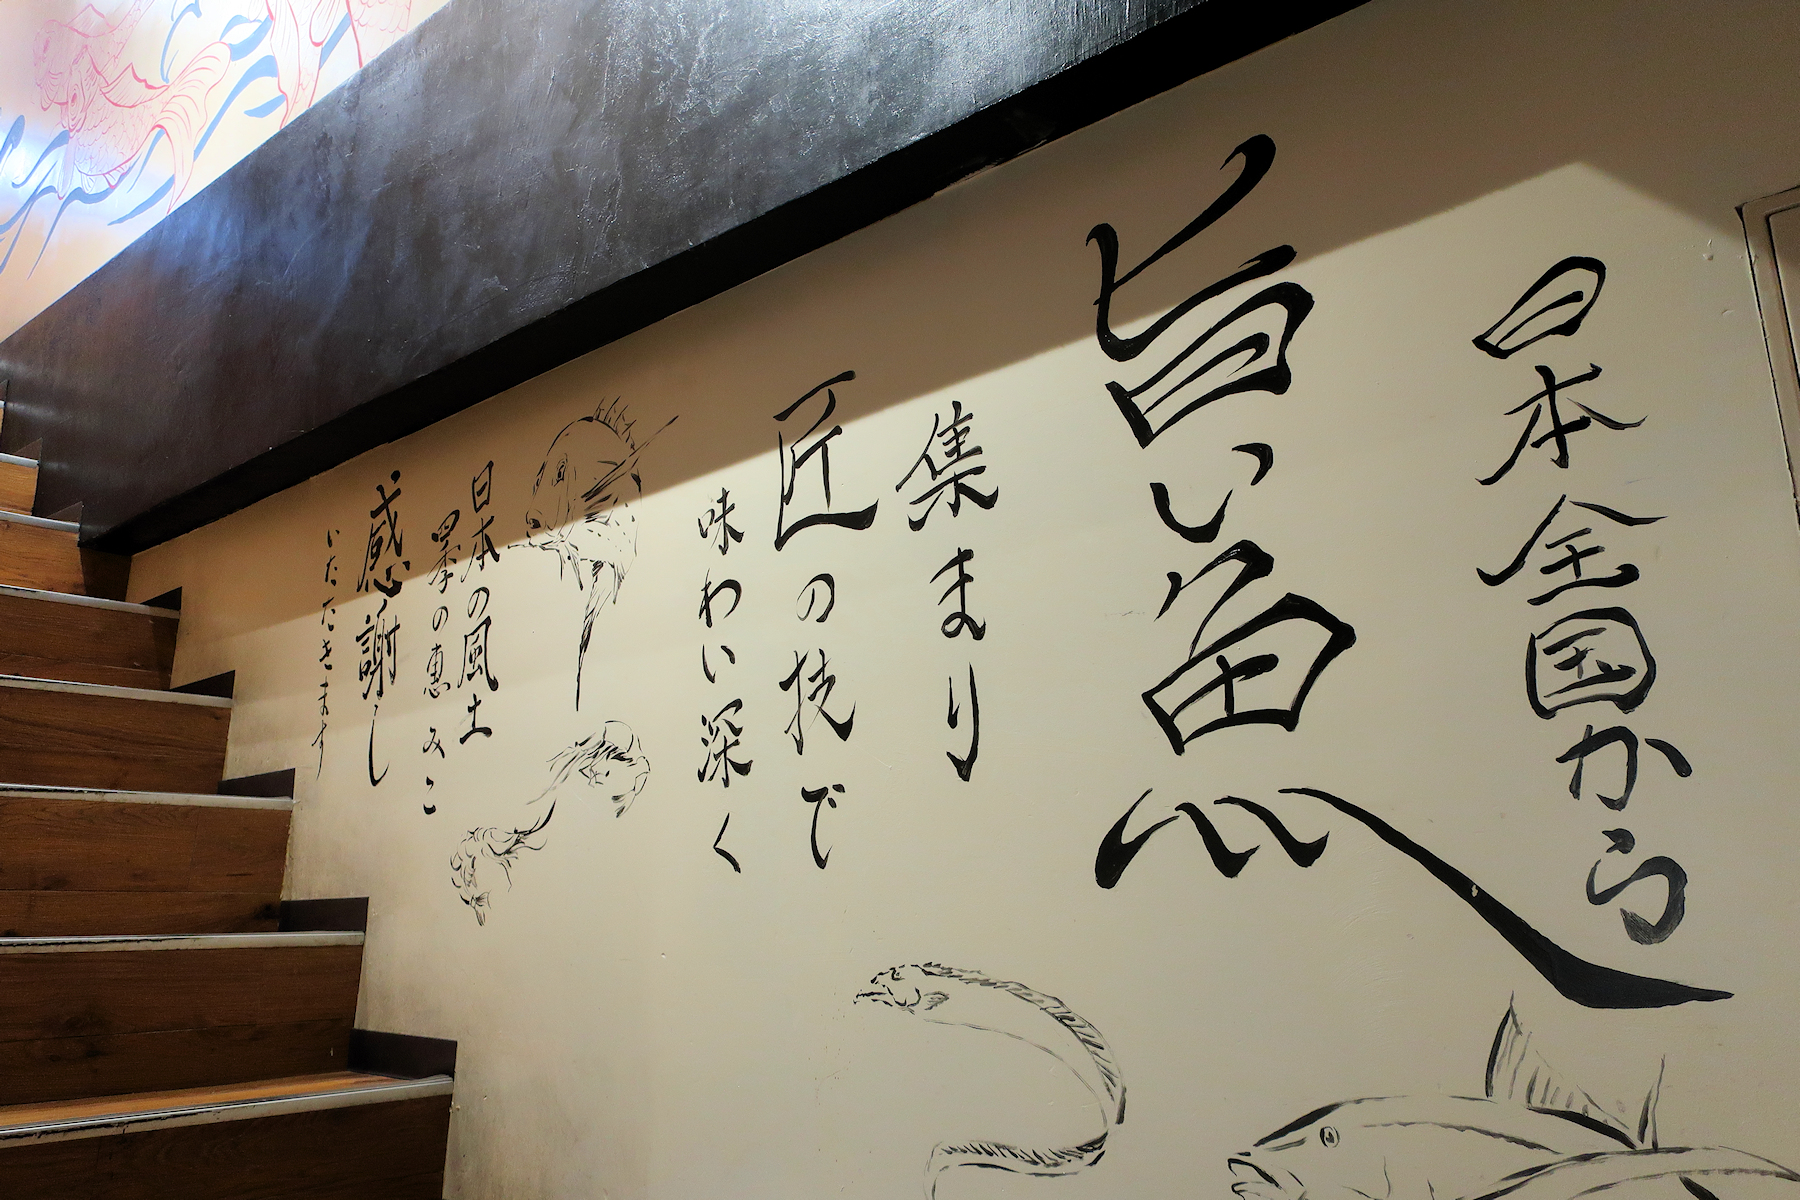 日本全国から
旨い魚
集まり
匠の技で
味わい深く
日本の風土
四季の恵みに
感謝し
いただきます